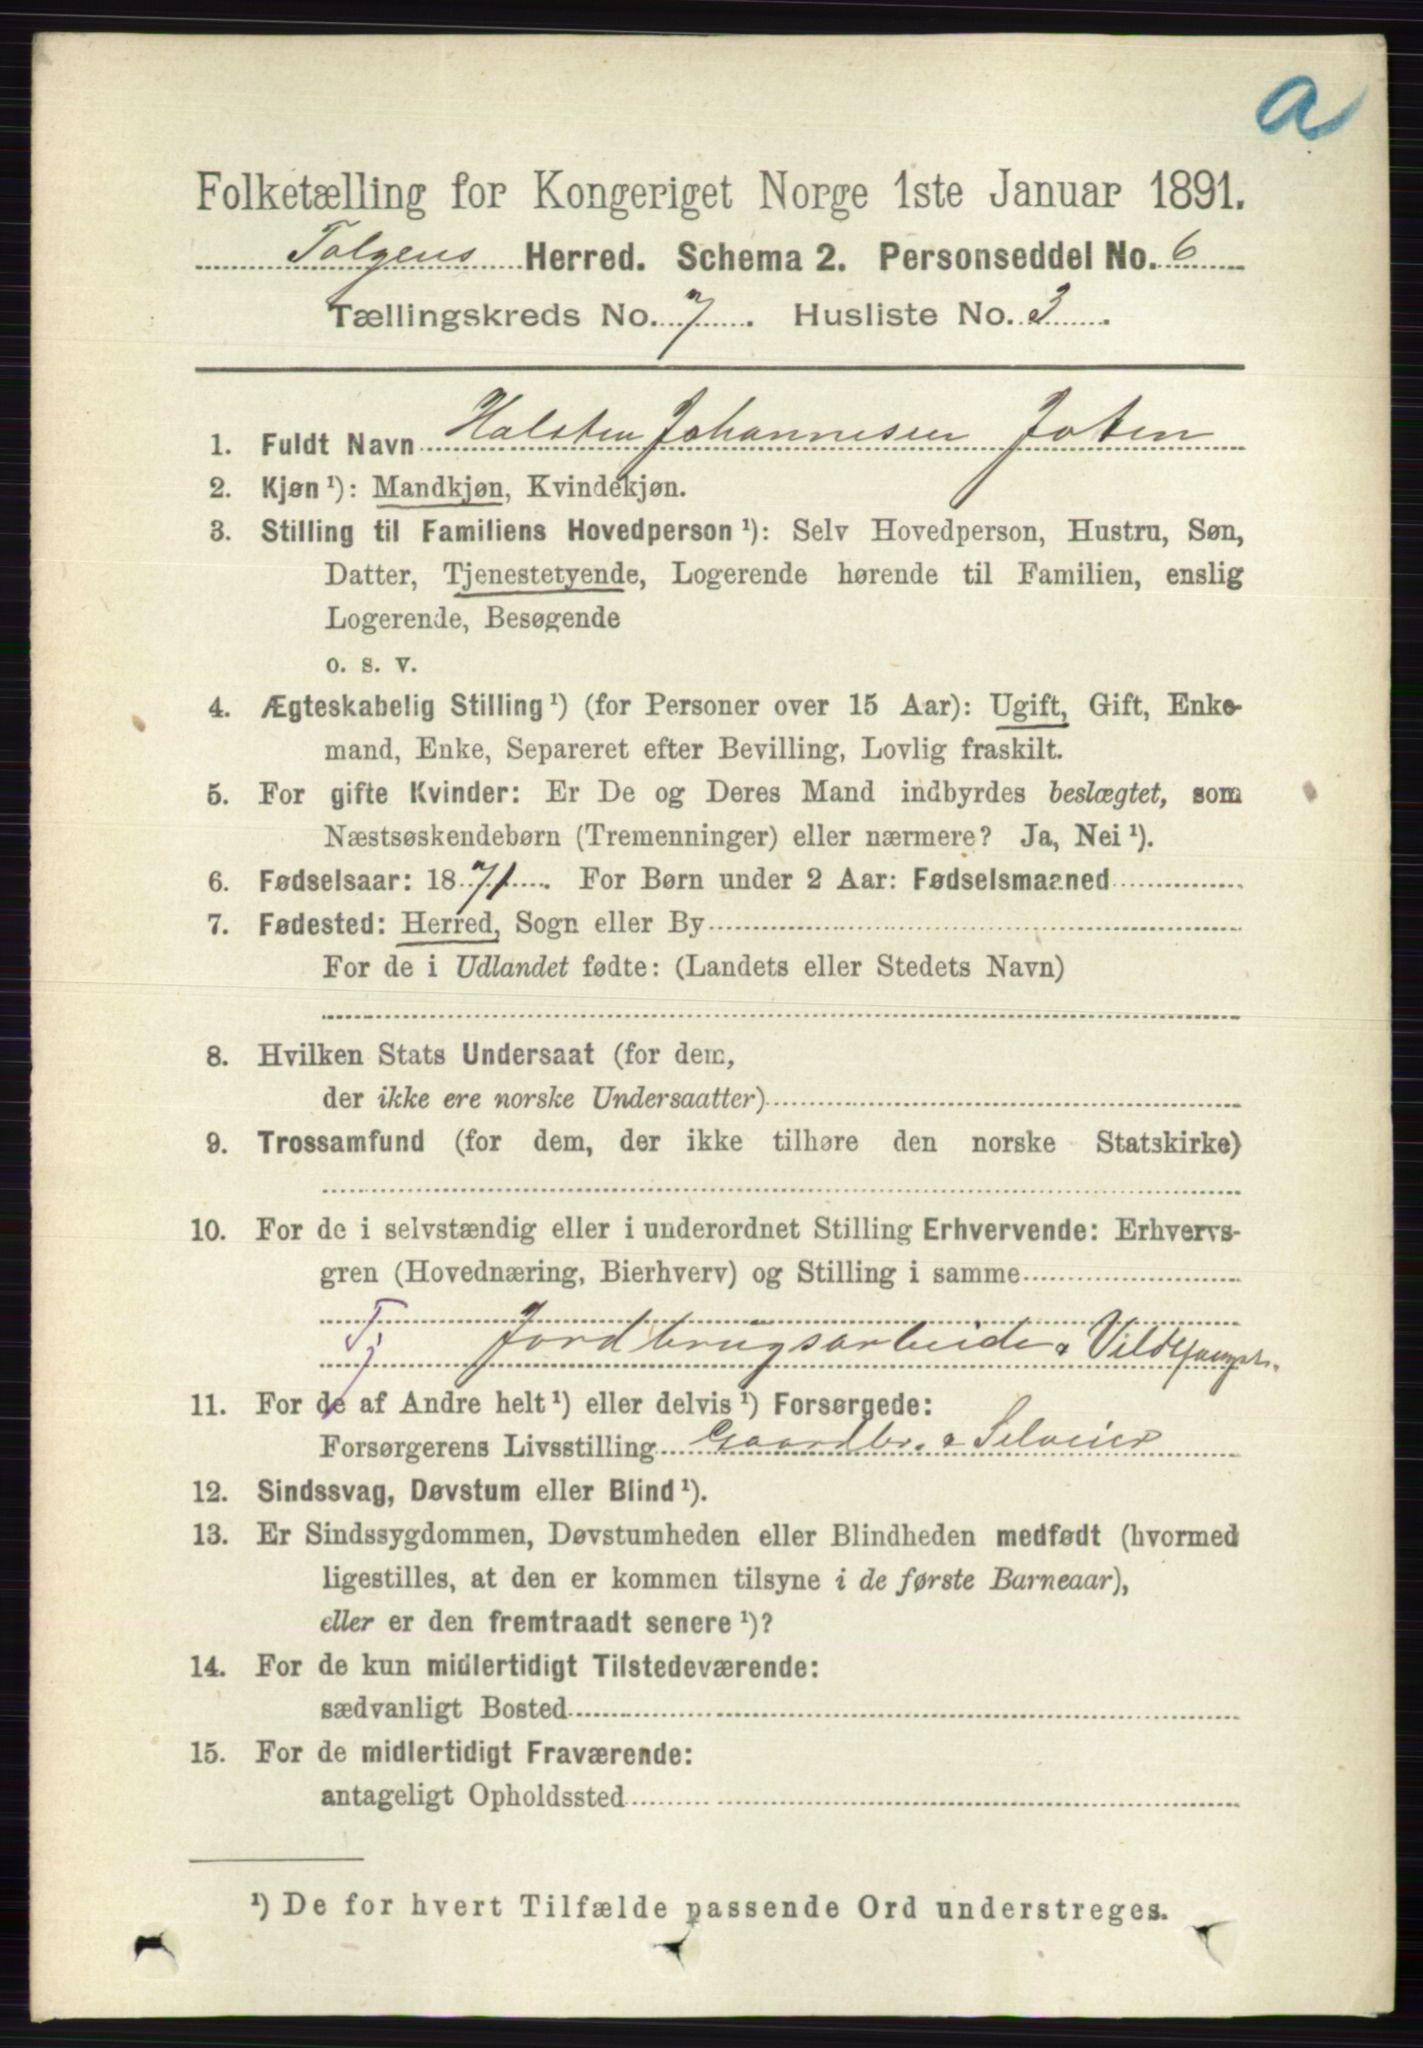 a
Folketælling for Kongeriget Norge 1ste Januar 1891.
Tolgens Herred. Schema 2. Personseddel No. 6
Tællingskreds No. 7. Husliste No. 3.
1. Fuldt Navn Halsten Johannesen Joten
2. Kjøn ¹): Mandkjøn, Kvindekjøn.
3. Stilling til Familiens Hovedperson ¹): Selv Hovedperson, Hustru, Søn,
Datter, Tjenestetyende, Logerende hørende til Familien, enslig
Logerende, Besøgende
o. s. v.
4. Ægteskabelig Stilling ¹) (for Personer over 15 Aar): Ugift, Gift, Enke-
mand, Enke, Separeret efter Bevilling, Lovlig fraskilt.
5. For gifte Kvinder: Er De og Deres Mand indbyrdes beslægtet, som
Næstsøskendebørn (Tremenninger) eller nærmere? Ja, Nei ¹).
6. Fødselsaar: 1871. For Børn under 2 Aar: Fødselsmaaned
7. Fødested: Herred, Sogn eller By
For de i Udlandet fødte: (Landets eller Stedets Navn)
8. Hvilken Stats Undersaat (for dem,
der ikke ere norske Undersaatter)
9. Trossamfund (for dem, der ikke tilhøre den norske Statskirke)
10. For de i selvstændig eller i underordnet Stilling Erhvervende: Erhvervs-
gren (Hovednæring, Bierhverv) og Stilling i samme
Tj Jordbrugsarbeide &
11. For de af Andre helt ¹) eller delvis ¹) Forsørgede:
Forsørgerens Livsstilling Gaardbr. & Selveier
12. Sindssvag, Døvstum eller Blind ¹).
13. Er Sindssygdommen, Døvstumheden eller Blindheden medfødt (hvormed
ligestilles, at den er kommen tilsyne i de første Barneaar),
eller er den fremtraadt senere ¹)?
14. For de kun midlertidigt Tilstedeværende:
sædvanligt Bosted
15. For de midlertidigt Fraværende:
antageligt Opholdssted
¹) De for hvert Tilfælde passende Ord understreges.